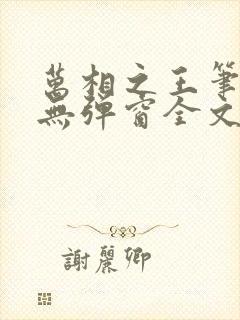 萬相之王筆
無彈窗全文
謝麗卿